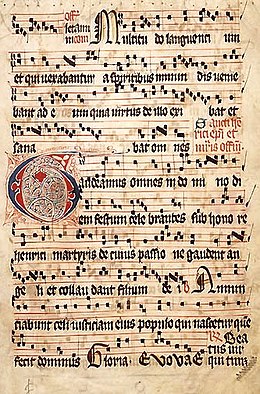 offm Multitudo languenti um
et qui vexabantur a spiritibus inmun dis venie
bant ad e um quia virtus de illo exi bat et
sana bat om nes
Gaudeamus omnes in do mi no di
em festum cele brantes sub hono re
henrici martyris de cuius passio ne gaudent an
ge li et collau dant filium de i Annun
ciabunt celi iusticiam eius populo qui nascetur que
fecit dominus Gloria Evovae
Bea
tus vir
qui tim